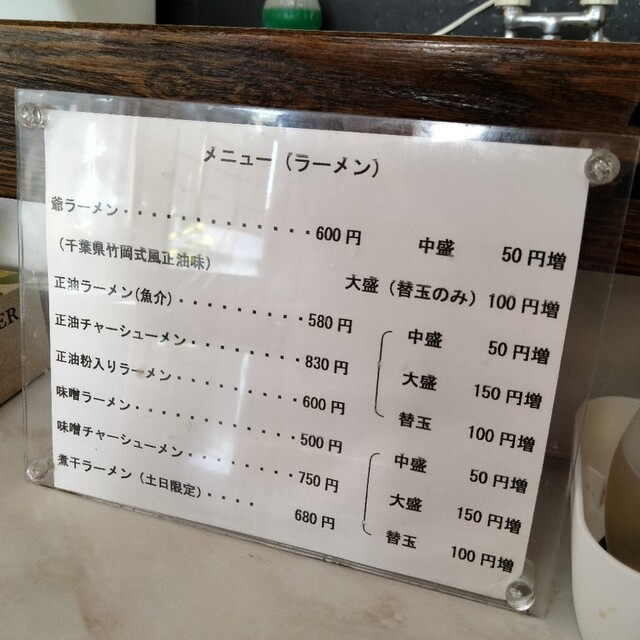 メニュー（ラーメン）
爺ラーメン・・・・・・・・・・・・・・600円 中盛 50円増
（千葉県竹岡式風正油味） 大盛（替玉のみ）100円増
正油ラーメン(魚介）・・・・・・・・・580円 中盛 50円増
正油チャーシューメン・・・・・・・・830円 大盛 150円増
正油粉入りラーメン・・・・・・・・・600円 替玉 100円増
味噌ラーメン・・・・・・・・・・・・500円 中盛 50円増
味噌チャーシューメン・・・・・・・・750円 大盛 150円増
煮干ラーメン（土日限定）・・・・ 680円 替玉 100円増
ER